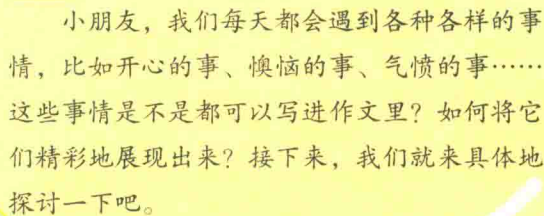 小朋友，我们每天都会遇到各种各样的事
情，比如开心的事、懊恼的事、气愤的事……
这些事情是不是都可以写进作文里？如何将它
们精彩地展现出来？接下来，我们就来具体地
探讨一下吧。